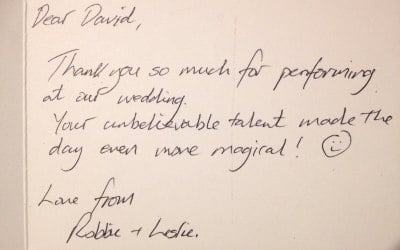 Dear David,
Thank you so much for performing
at our wedding.
Your unbelievable talent made the
day even more magical! ☺
Love from
Robbie + Leslie.